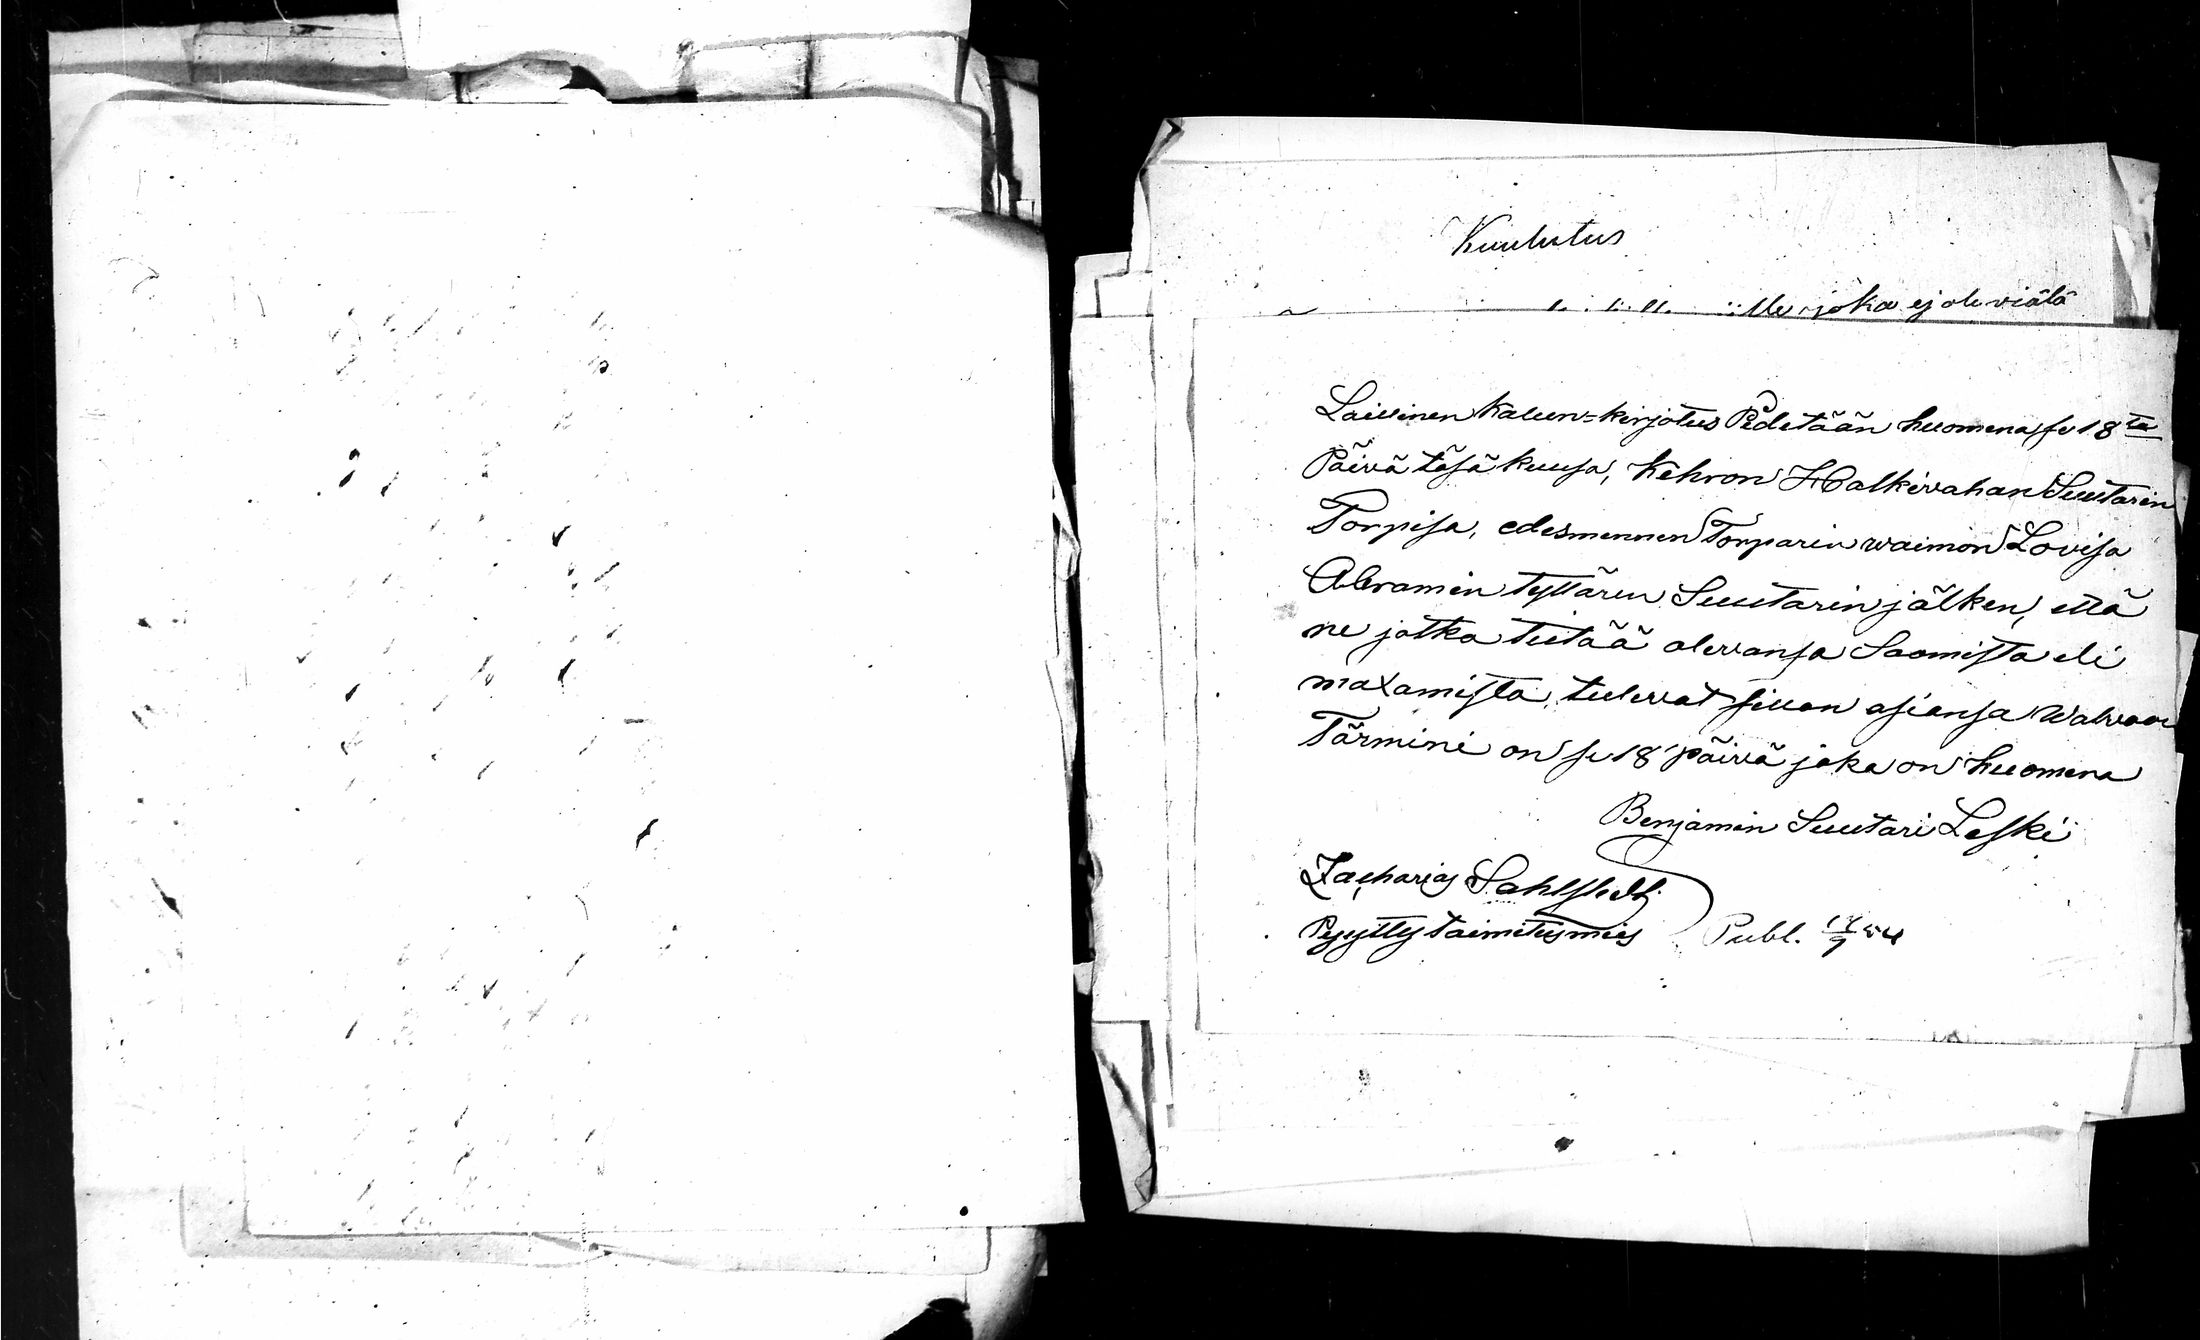 Kuulutus
joka ej ole viälä
Laillinen kalun-kirjotus Pidetään huomena se 18ta
Päivä täsä kuusa, Kehron Halkivahan Suutarin
Torpisa, edesmennen Torparin waimon Lovisa
Abramin tyttären Suutarin jälken, että
ne jotka tietää olevansa Saamista eli
maxamista, tulevat sillon asiansa Walvoon
Tärmini on se 18 päivä joka on huomena
Benjamin Suutari Leski
Zacharias Sahlstedt
Pyytty taimitusmies Publ.